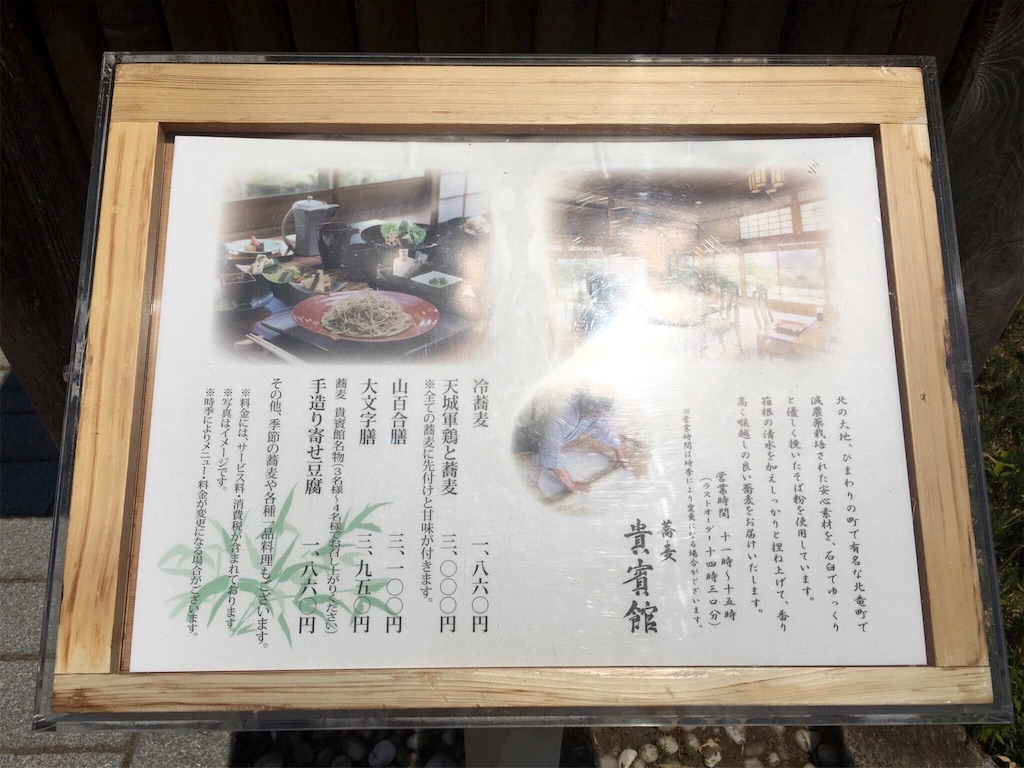 北の大地、ひまわりの町で有名な北竜町で
減農薬栽培された安心素材を、石臼でゆっくり
と優しく挽いたそば粉を使用しています。
箱根の清水を加えしっかりと捏ね上げて、香り
高く喉越しの良い蕎麦をお届けいたします。
営業時間 十一時～十五時
(ラストオーダー 十四時三〇分)
※営業時間は時季により変更になる場合がございます。
蕎麦
貴賓館
冷蕎麦 一、八六〇円
天城軍鶏と蕎麦 三、〇〇〇円
※全ての蕎麦に先付けと甘味が付きます。
山百合膳 三、一〇〇円
大文字膳 三、九五〇円
蕎麦 貴賓館名物(3名様～4名様でお召し上がりください)
手造り寄せ豆腐 一、八六〇円
その他、季節の蕎麦や各種一品料理もございます。
※料金には、サービス料・消費税が含まれております。
※写真はイメージです。
※時季によりメニュー・料金が変更になる場合がございます。